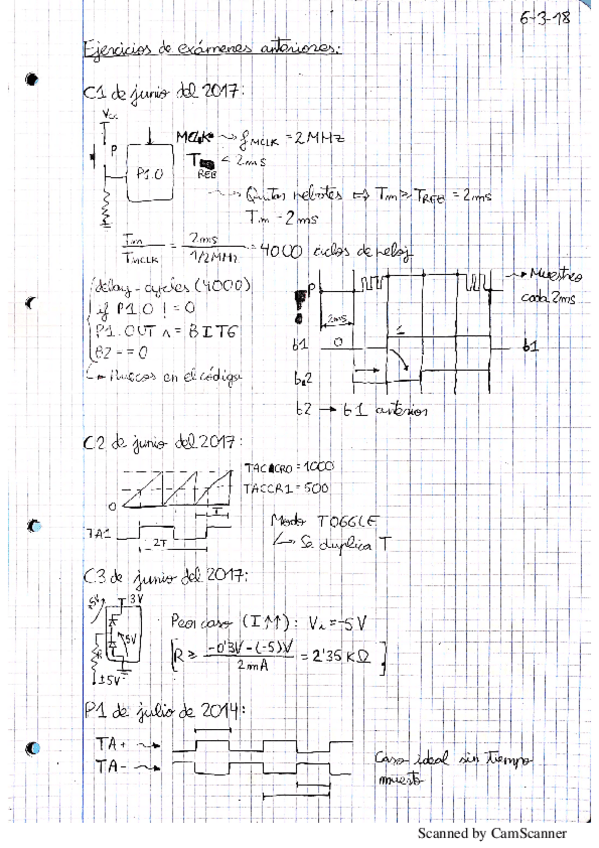 6-3-18
Ejercicios de exámenes anteriores:
C1 de junio del 2017:
Vcc
MCLK → f MCLK = 2MHz
P
P1.0
T REB < 2ms
→ Quitar rebotes ⇔ Tm ≥ TREB = 2ms
Tm = 2ms
Tm / TMCLK = 2ms / 1/2MHz = 4000 ciclos de reloj
delay-cycles (4000)
if P1.0 ! = 0
P1.OUT ^ = BIT6
B2 - = 0
↳ Huecos en el código
P
→ Muestreo
cada 2ms
2ms
b1 0 1 b1
b2
b2 → b1 anterior
C2 de junio del 2017:
TACCR0 = 1000
TACCR1 = 500
0
T
TA1
2T
Modo TOGGLE
↳ Se duplica T
C3 de junio del 2017:
3V
5V
R
±5V
Peor caso (I↑↑): V₁ = -5V
[R ≥ -0'3V - (-5)V / 2mA = 2'35 KΩ]
P1 de julio de 2014:
TA+ →
TA- →
Caso ideal sin tiempo
muerto
Scanned by CamScanner